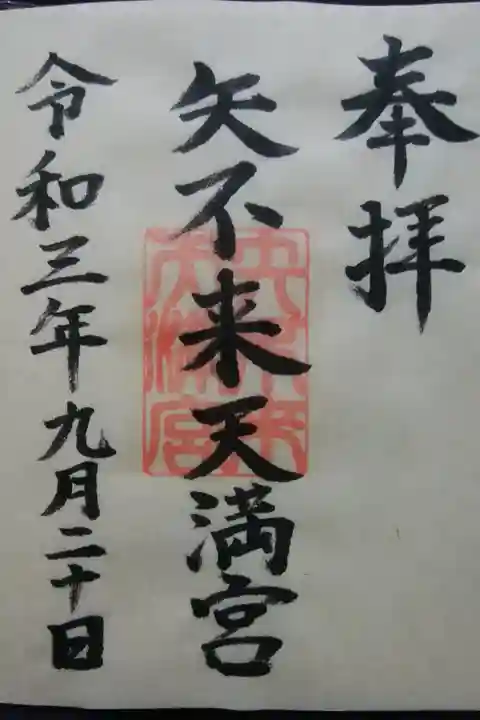 奉拝
矢不来天満宮
令和三年九月二十日